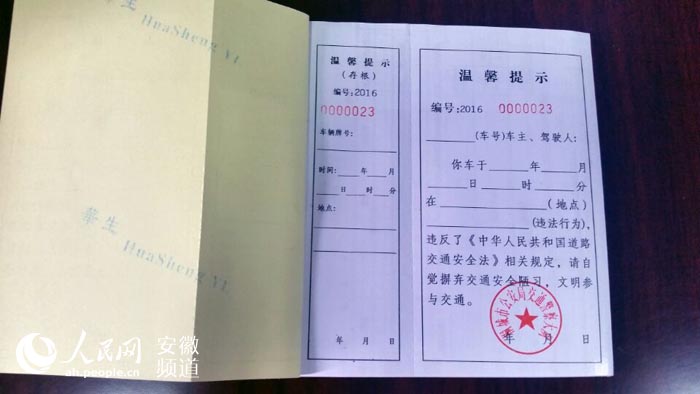 生
HuaSheng YI
生
HuaSheng YI
温馨提示
(存根)
编号:2016
0000023
车辆牌号:
时间: 年 月
日 时 分
地点:
年 月 日
温馨提示
编号:2016 0000023
(车号)车主、驾驶人:
你车于 年 月
日 时 分
在 (地点)
(违法行为),
违反了《中华人民共和国道路
交通安全法》相关规定,请自
觉摒弃交通安全陋习,文明参
与交通。
城市公安局交通警察大队
年 月 日
人民网 安徽频道
ah.people.cn